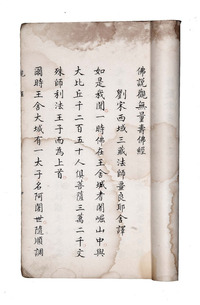 佛說觀無量壽佛經
劉宋西域三藏法師畺良耶舍譯
如是我聞一時佛在王舍城耆闍崛山中與
大比丘千二百五十人俱菩薩三萬二千文
殊師利法王子而為上首
爾時王舍大城有一太子名阿闍世隨順調